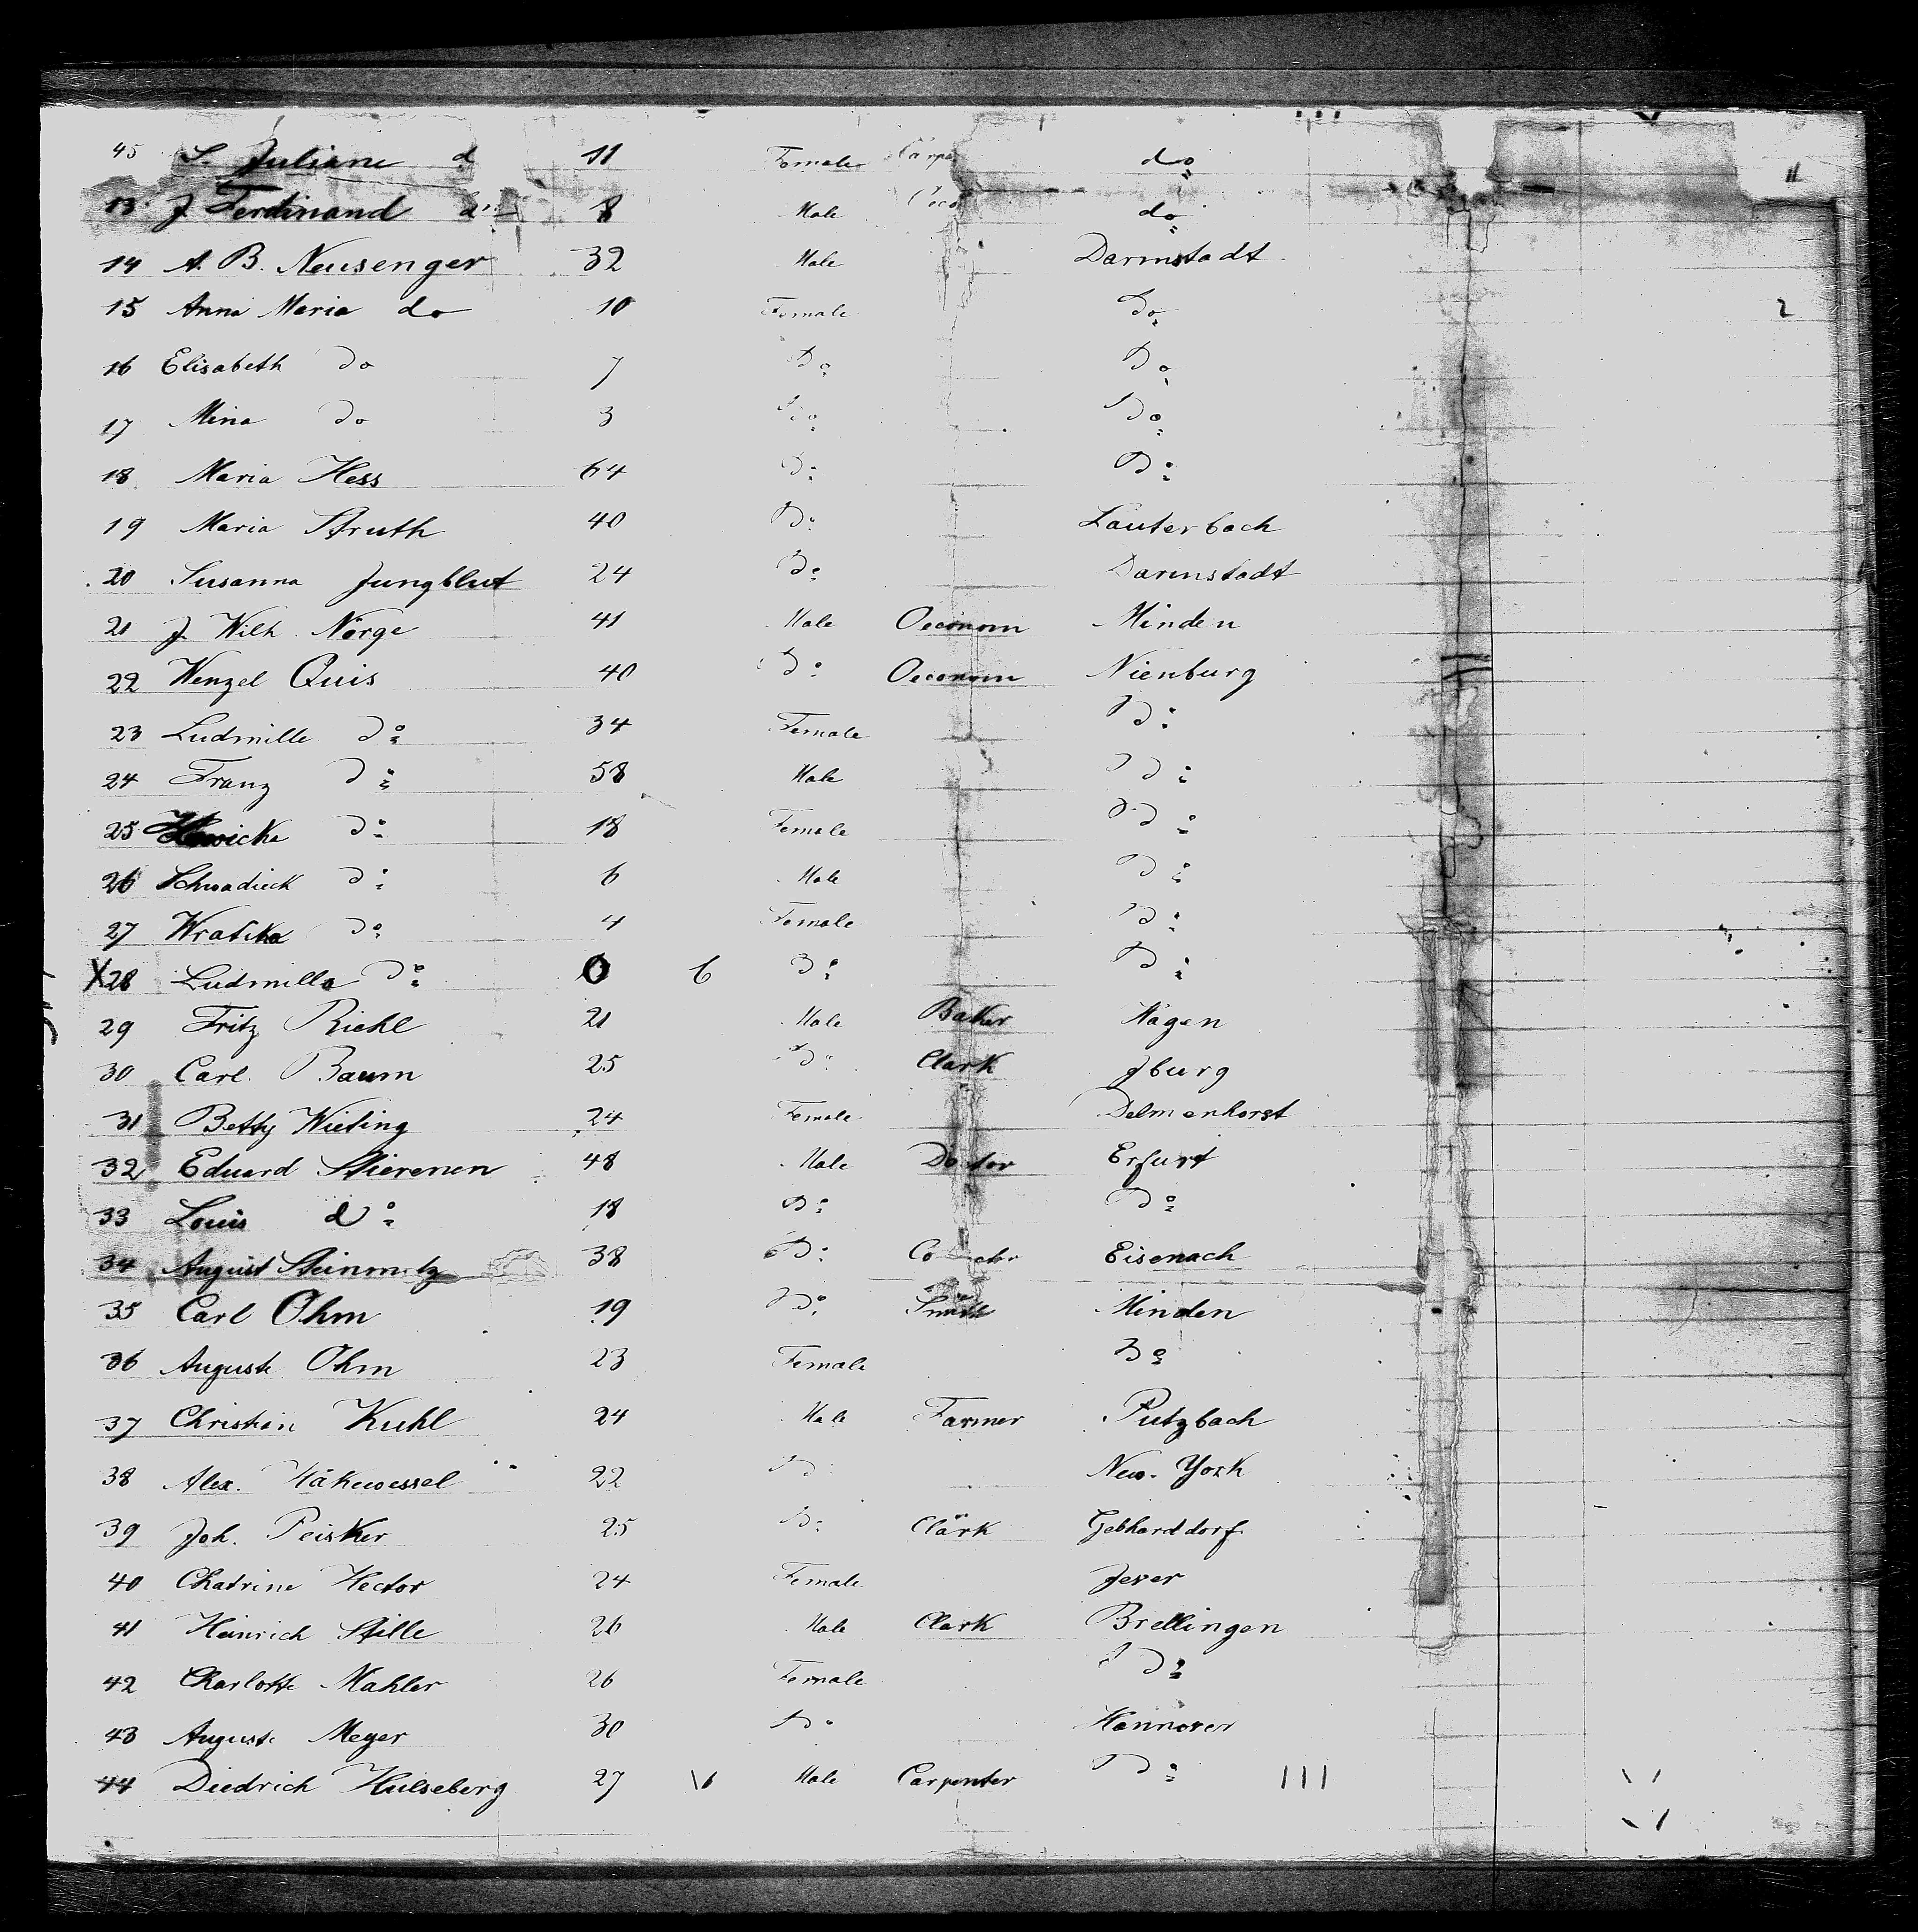 45 S. Juliane d 11 Female Carpe do 11
13 J Ferdinand do 8 Male do
14 A. B. Neusenger 32 Male Darmstadt
15 Anna Maria do 10 Female Do 2
16 Elisabeth Do 7 Do Do
17 Mina Do 3 Do Do
18 Maria Hess 64 Do Do
19 Maria Struth 40 Do Lauterbach
20 Susanna Jungblut 24 Do Darmstadt
21 J. Wilh. Nörge 41 Male Oeconom Minden
22 Wenzel Quis 40 Do Oeconom Nienburg
23 Ludmille Do 34 Female Do
24 Franz Do 58 Male Do
25 Do 18 Female Do
26 Schwadieck Do 6 Male Do
27 Wratika Do 4 Female Do
X28 Ludmilla Do 0 6 Do Do
29 Fritz Riehl 21 Male Baker Hagen
30 Carl. Baum 25 Do Clark Jburg
31 Betty Wieting 24 Female Delmenhorst
32 Eduard Stierenen 48 Male Doctor Erfurt
33 Louis do 18 Do Do
34 August Steinmetz 38 Do Eisenach
35 Carl Ohm 19 Do Smith Minden
36 Auguste Ohm 23 Female Do
37 Christian Kuhl 24 Male Farmer Putzbach
38 Alex. Häkewessel 22 Do New-York
39 Joh. Peisker 25 Do Clark Gebharddorf
40 Chatrine Hector 24 Female Jever
41 Heinrich Stille 26 Male Clark Brellingen
42 Charlotte Mahler 26 Female Do
43 Auguste Meyer 30 Do Hannover
44 Diedrich Hulseberg 27 Male Carpenter Do